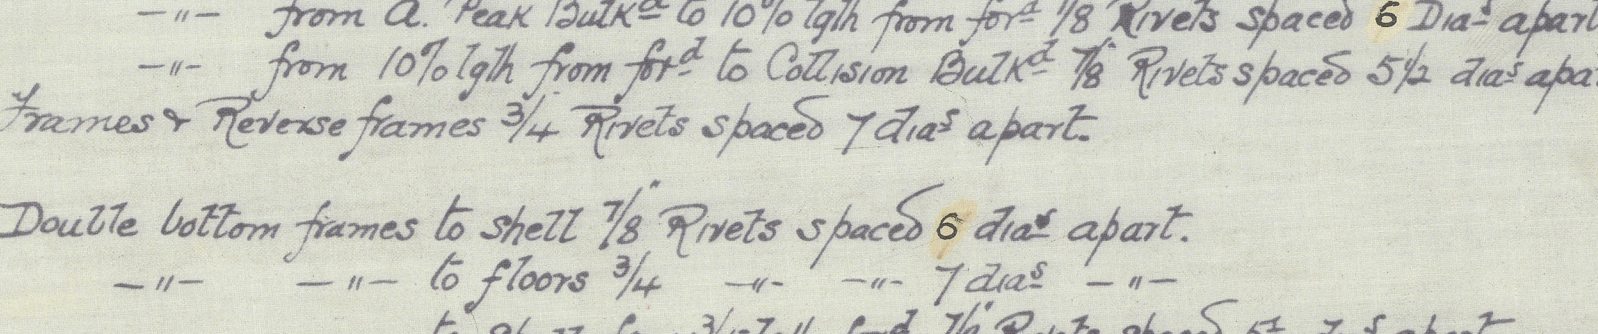 -"- from A. Peak Bulkd to 10% lgth from ford 7/8 Rivets spaced 6 Dias apart
-"- from 10% lgth from ford to Collision Bulkd 7/8" Rivets spaced 5 1/2 dias apa
Frames & Reverse frames 3/4 Rivets spaced 7 dias apart.
Double bottom frames to shell 7/8" Rivets spaced 6 dias apart.
-"- -"- to floors 3/4 -"- -"- 7 dias -"-
to ford 7/8" Rivets spaced apart